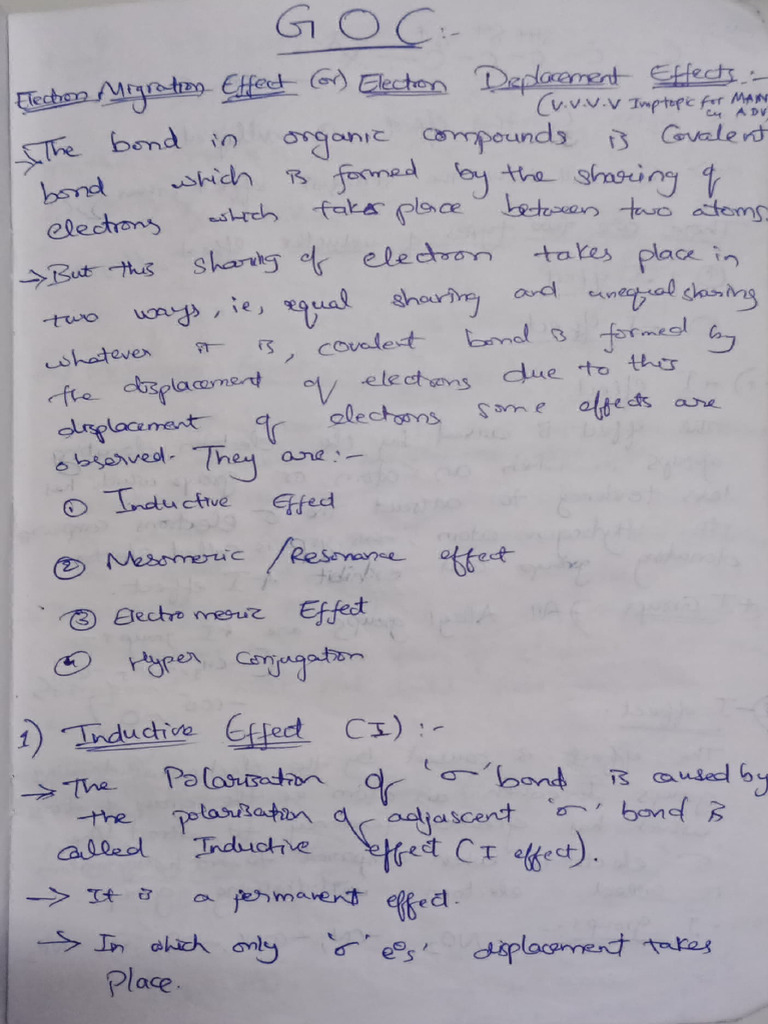 G O C :-
Electron Migration Effect (or) Electron Deplacement Effects :-
(V.V.V.V Imp topic for MAIN
ADV
→ The bond in organic compounds is Covalent
bond which is formed by the sharing of
electrons which takes place between two atoms.
→ But this sharing of electron takes place in
two ways, ie, equal sharing and unequal sharing
whatever it is, covalent bond is formed by
the displacement of electrons due to this
displacement of electrons some effects are
observed. They are :-
① Inductive Effect
② Mesomeric / Resonance effect
③ Electromeric Effect
④ Hyper Conjugation
1) Inductive Effect (I) :-
→ The Polarisation of 'σ' bond is caused by
the polarisation of adjascent 'σ' bond is
called Inductive effect (I effect).
→ It is a permanent effect.
→ In which only 'σ' e⁰s' displacement takes
Place.